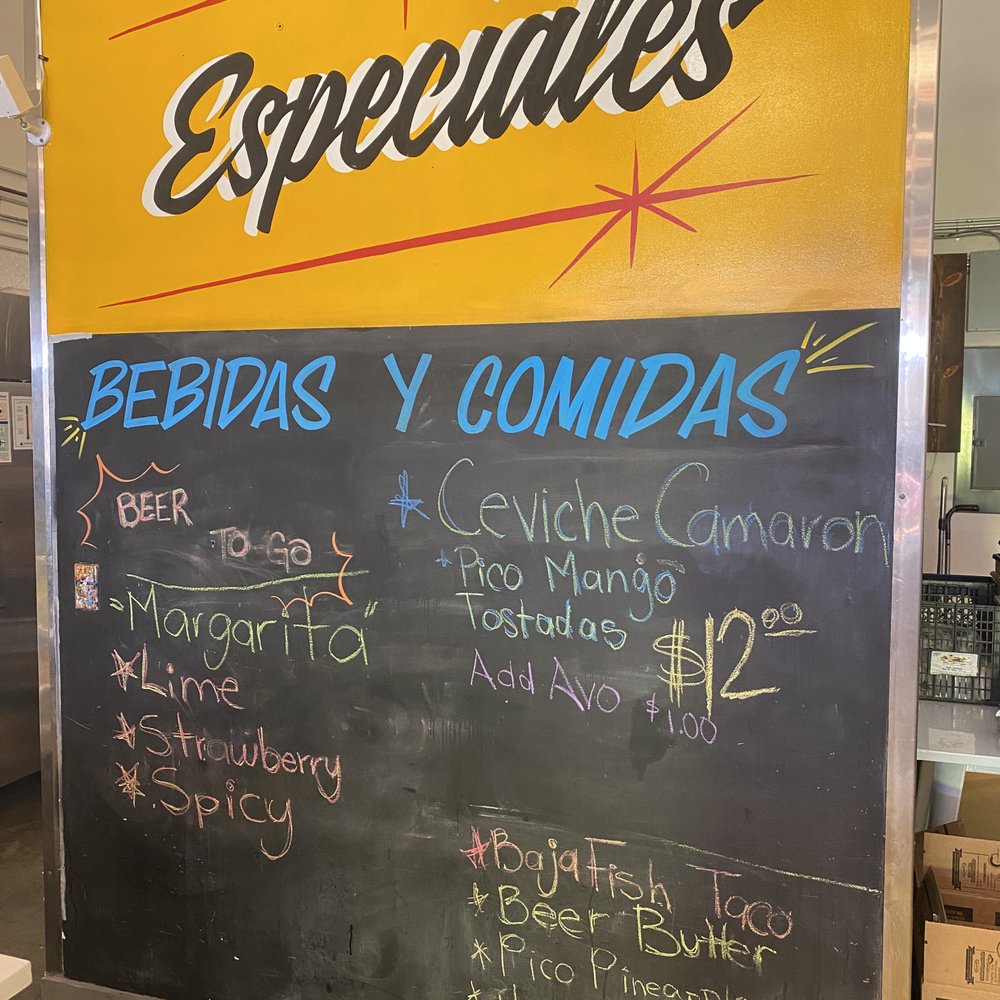 Especiales
BEBIDAS Y COMIDAS
BEER
TO-GO
"Margarita"
Lime
Strawberry
Spicy
Ceviche Camaron
Pico Mango
Tostadas
$12.00
Add Avo $1.00
Baja Fish Taco
Beer Butter
Pico Pineapple